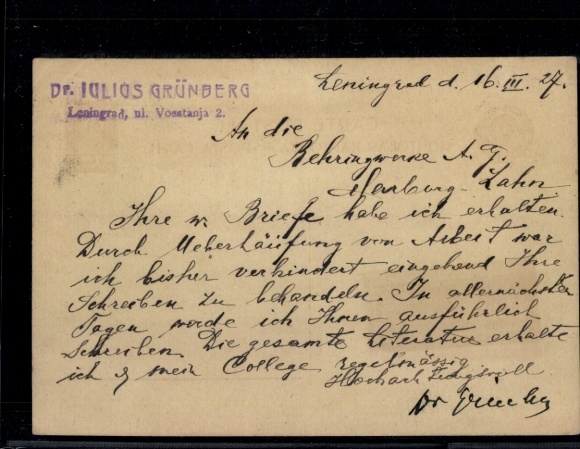 Dr. JULIUS GRÜNBERG
Leningrad, ul. Vosstanja 2.
Leningrad d. 16. III. 27.
An die
Behringwerke A. G.
Marburg-Lahn
Ihre w. Briefe habe ich erhalten.
Durch Ueberhäufung von Arbeit war
ich bisher verhindert eingehend Ihre
Schreiben zu behandeln. In allernächsten
Tagen werde ich Ihnen ausführlich
schreiben. Die gesamte Literatur erhalte
ich & mein College regelmässig
Hochachtungsvoll
Dr Grünberg